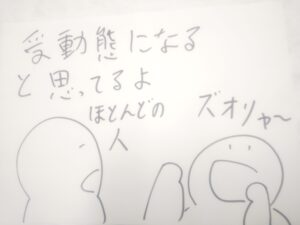 受動態になる
と思ってるよ
ほとんどの
人
ズオリャ〜